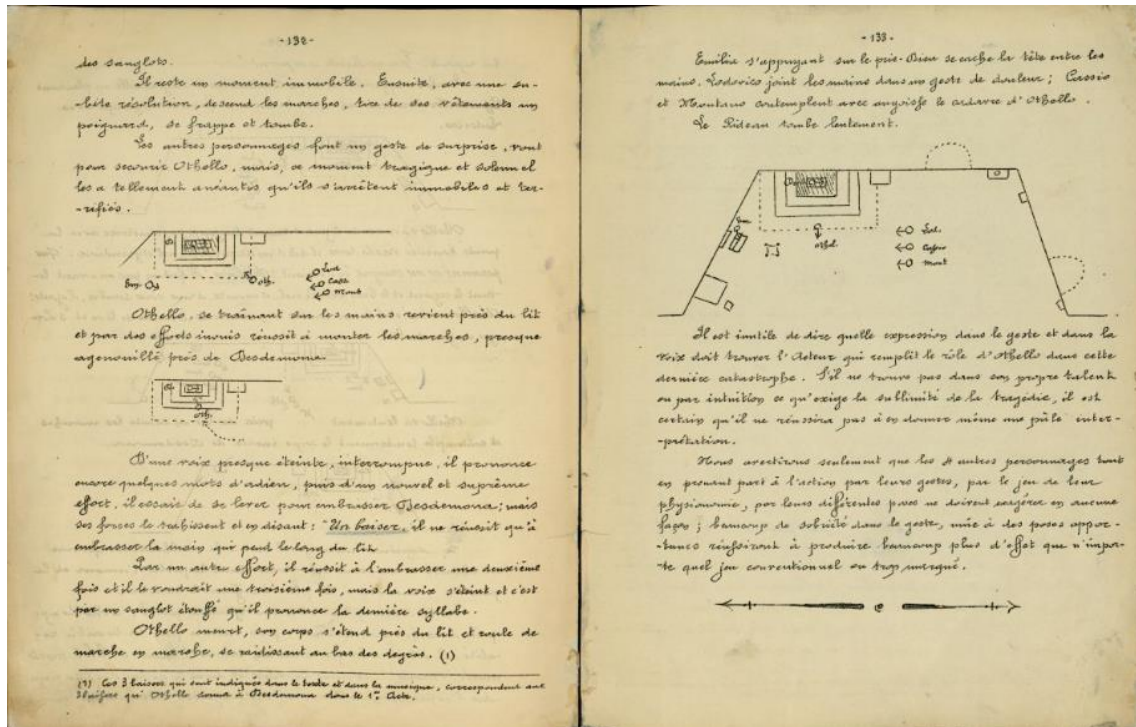 -132-
des sanglots.
Il reste un moment immobile. Ensuite, avec une su-
bite résolution, descend les marches, tire de ses vêtements un
poignard, se frappe et tombe.
Les autres personnages font un geste de surprise, vont
pour secourir Othello, mais, ce moment tragique et solennel
les a tellement anéantis qu'ils s'arrêtent immobiles et ter-
-rifiés.
D
Em.
Oth.
Lod
Cass
Mont
Othello, se traînant sur les mains revient près du lit
et par des efforts inouis réussit à monter les marches, presque
agenouillé près de Desdemona.
Oth.
D'une voix presque éteinte, interrompue, il prononce
encore quelques mots d'adieu, puis d'un nouvel et suprême
effort, il essaie de se lever pour embrasser Desdemona; mais
ses forces le trahissent et en disant: "Un baiser, il ne réussit qu'à
embrasser la main qui pend le long du lit.
Par un autre effort, il réussit à l'embrasser une deuxième
fois et il le voudrait une troisième fois, mais la voix s'éteint et c'est
par un sanglot étouffé qu'il prononce la dernière syllabe.
Othello meurt, son corps s'étend près du lit et roule de
marche en marche, se raidissant au bas des degrès. (1)
(1) Ces 3 baisers qui sont indiqués dans le texte et dans la musique, correspondent aux
3 baisers qu'Othello donna à Desdemona dans le 1er Acte.
-133-
Emilia s'appuyant sur le prie-Dieu se cache la tête entre les
mains. Lodovico joint les mains dans un geste de douleur; Cassio
et Montano contemplent avec angoisse le cadavre d'Othello.
Le Rideau tombe lentement.
Em
Othel.
Lod.
Cassio
Mont
Il est inutile de dire quelle expression dans le geste et dans la
voix doit trouver l'Acteur qui remplit le rôle d'Othello dans cette
dernière catastrophe. S'il ne trouve pas dans son propre talent
ou par intuition ce qu'exige la sublimité de la tragédie, il est
certain qu'il ne réussira pas à en donner même une pâle inter-
-prétation.
Nous avertirons seulement que les 4 autres personnages tout
en prenant part à l'action par leurs gestes, par le jeu de leur
physionomie, par leurs différentes poses ne doivent exagérer en aucune
façon; beaucoup de sobriété dans le geste, unie à des poses oppor-
-tunes réussiront à produire beaucoup plus d'effet que n'impor-
-te quel jeu conventionnel ou trop marqué.